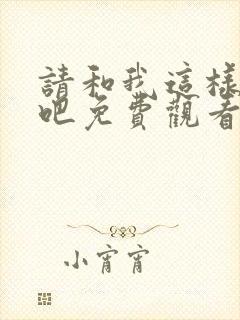 請和我這樣
吧免費觀看
小宵宵